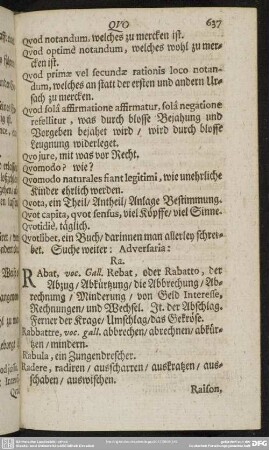 QVO 637
Qvod notandum. welches zu mercken ist.
Qvod optimè notandum, welches wohl zu mer-
cken ist.
Qvod primæ vel secundæ rationis loco notan-
dum, welches an statt der ersten und andern Ur-
sach zu mercken.
Qvod solâ affirmatione affirmatur, solâ negatione
refellitur, was durch blosse Bejahung und
Vorgeben bejahet wird / wird durch blosse
Leugnung widerleget.
Qvo jure, mit was vor Recht.
Qvomodo? wie?
Qvomodo naturales fiant legitimi, wie unehrliche
Kinder ehrlich werden.
Qvota, ein Theil / Antheil / Anlage Bestimmung.
Qvot capita, qvot sensus, viel Köpffe / viel Sinne.
Qvotidiè, täglich.
Qvotliber, ein Buch / darinnen man allerley schrei-
bet. Suche weiter: Adversaria:
Ra.
RAbat, voc. Gall. Rebat, oder Rabatto, der
Abzug / Abkürtzung / die Abbrechung / Ab-
rechnung / Minderung / von Geld Interesse,
Rechnungen / und Wechsel. It. der Abschlag.
Ferner der Krage / Umschlag / das Gekröse.
Rabbattre, voc. gall. abbrechen / abrechnen / abkür-
tzen / mindern.
Rabula, ein Zungendrescher.
Radere, radiren / ausscharren / auskratzen / aus-
schaben / auswischen.
Raison,